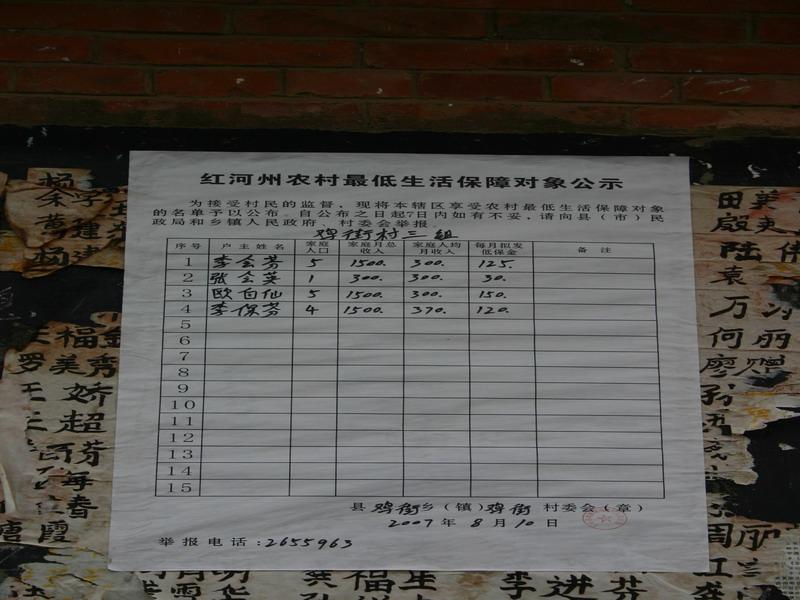 红河州农村最低生活保障对象公示
为接受村民的监督，现将本辖区享受农村最低生活保障对象
的名单予以公布。自公布之日起7日内如有不妥，请向县（市）民
政局和乡镇人民政府、村委会举报。
鸡街村三组
序号 户主姓名 家庭人口 家庭月总收入 家庭人均月收入 每月拟发低保金 备注
1 李会芬 5 1500. 300. 125.
2 张会英 1 300. 300. 30.
3 欧自仙 5 1500. 300. 150.
4 李保芬 4 1500. 370. 120.
5
6
7
8
9
10
11
12
13
14
15
县鸡街乡（镇）鸡街村委会（章）
2007年8月10日
举报电话：2655963
杨 学
余 建
黄 建
福 金
罗 美 秀
王 娇
超
芬
每
春
唐 霞
田 美
殷
陆 伟
袁
万
何 丽
廖 赠
周 丽
江
龚
明
龚 福 生
李 进 芬